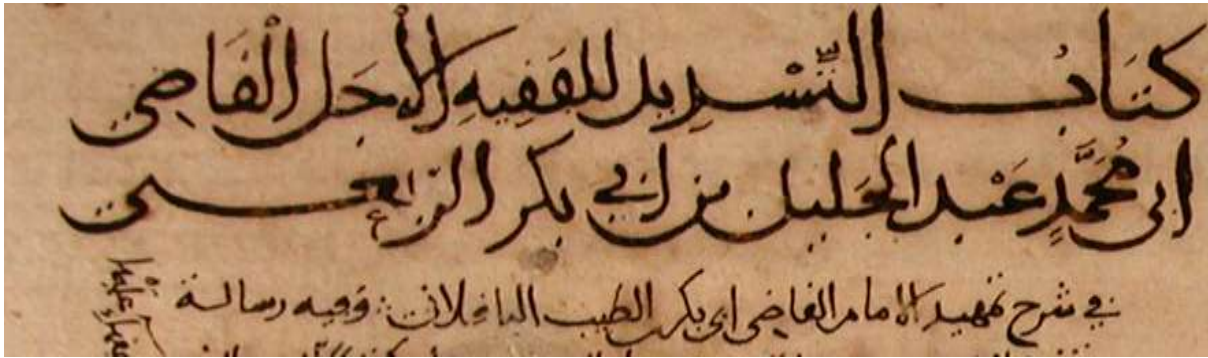 كتاب التسديد للفقيه الأجل القاضي
ابي محمد عبد الجليل بن ابي بكر الربعي
في شرح تمهيد الامام القاضي ابي بكر الطيب الباقلاني وفيه رسالة